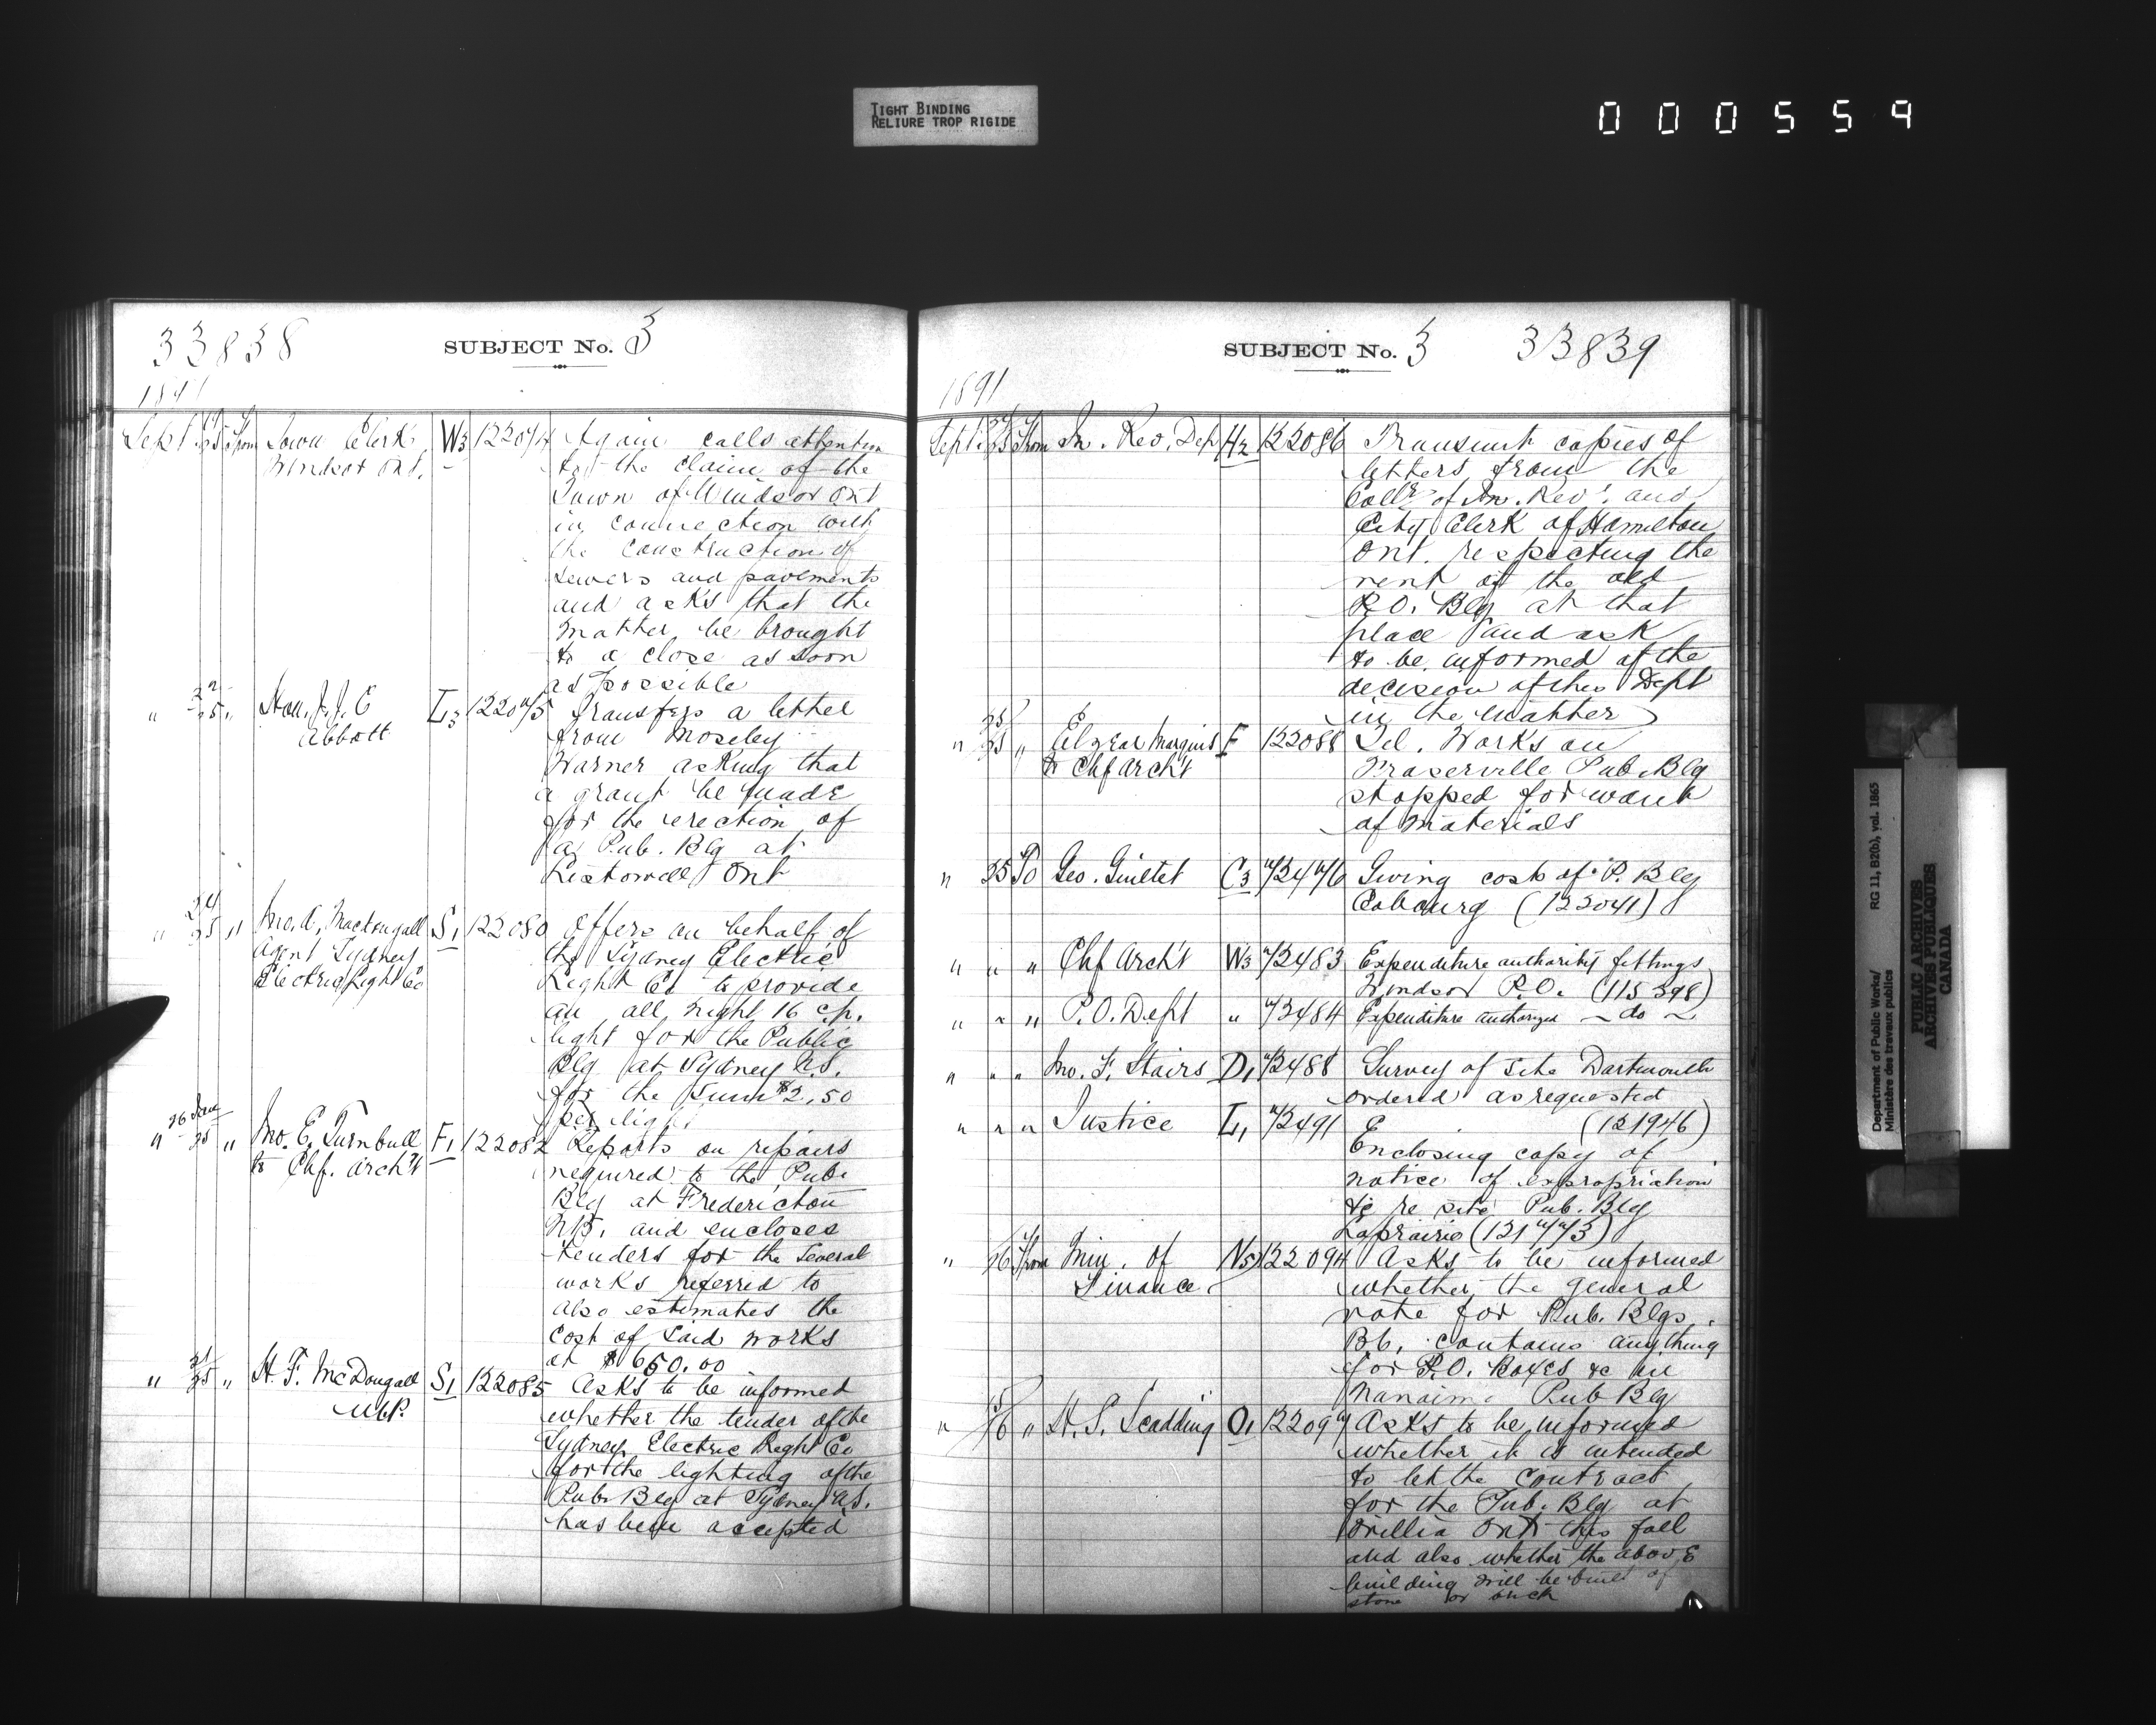 TIGHT BINDING
RELIURE TROP RIGIDE
000559
33838
SUBJECT No. 3
1891
Sept 25 From Town Clerk W3 122074 Again calls attention
Windsor Ont. to the claim of the
Town of Windsor Ont
in connection with
the construction of
sewers and pavements
and asks that the
matter be brought
to a close as soon
as possible
" 22/25 " Hon. J. J. C L3 122075 Transfers a letter
Abbott from Moseley
Warner asking that
a grant be made
for the erection of
a Pub. Blg at
Listowell Ont
" 24/25 " Jno. A. Macdougall S1 122080 Offers on behalf of
Agent Sydney the Sydney Electric
Electric Light Co Light Co to provide
an all night 16 c.p.
light for the Public
Blg at Sydney N.S.
for the sum $2.50
per light
" 26 June/25 " Jno. E. Turnbull F1 122082 Reports on repairs
to Chf. Arch't required to the Pub.
Blg at Fredericton
N.B. and encloses
tenders for the several
works referred to
also estimates the
cost of said works
at $650.00
" 21/25 " H. F. McDougall S1 122085 Asks to be informed
M.P. whether the tender of the
Sydney Electric Light Co
for the lighting of the
Pub. Blg at Sydney N.S.
has been accepted
SUBJECT No. 3 33839
1891
Sept. 24/25 From In. Rev. Dep H2 122086 Transmit copies of
letters from the
Collr of In. Rev. and
City Clerk of Hamilton
Ont. respecting the
rent of the old
P.O. Blg at that
place and ask
to be informed of the
decision of this Dept
in the matter
" 25/25 " Elzear Marquis F 122088 Tel. Works on
to Chf Arch't Fraserville Pub. Blg
stopped for want
of materials
" 25 To Geo. Guillet C3 72476 Giving cost of P. Blg
Cobourg (122041)
" " " Chf Arch't W3 72483 Expenditure authority fittings
Windsor P.O. (115398)
" " " P.O. Dept " 72484 Expenditure authorized ~ do ~
" " " Jno. F. Stairs D1 72488 Survey of site Dartmouth
ordered as requested
(121946)
" " " Justice L1 72491 Enclosing copy of
notice of expropriation
&c re site Pub. Blg
Laprairie (121773)
" 26 From Min. of N5 122094 Asks to be informed
Finance whether the general
vote for Pub. Blgs.
B.C. contains anything
for P.O. Boxes &c in
Nanaimo Pub Blg
" 25/26 " H. S. Scadding O1 122099 Asks to be informed
whether it is intended
to let the contract
for the Pub. Blg at
Orillia Ont this fall
and also whether the above
building will be built of
stone or brick
Department of Public Works/ RG 11, B2(b), vol. 1865
Ministère des travaux publics
PUBLIC ARCHIVES
ARCHIVES PUBLIQUES
CANADA